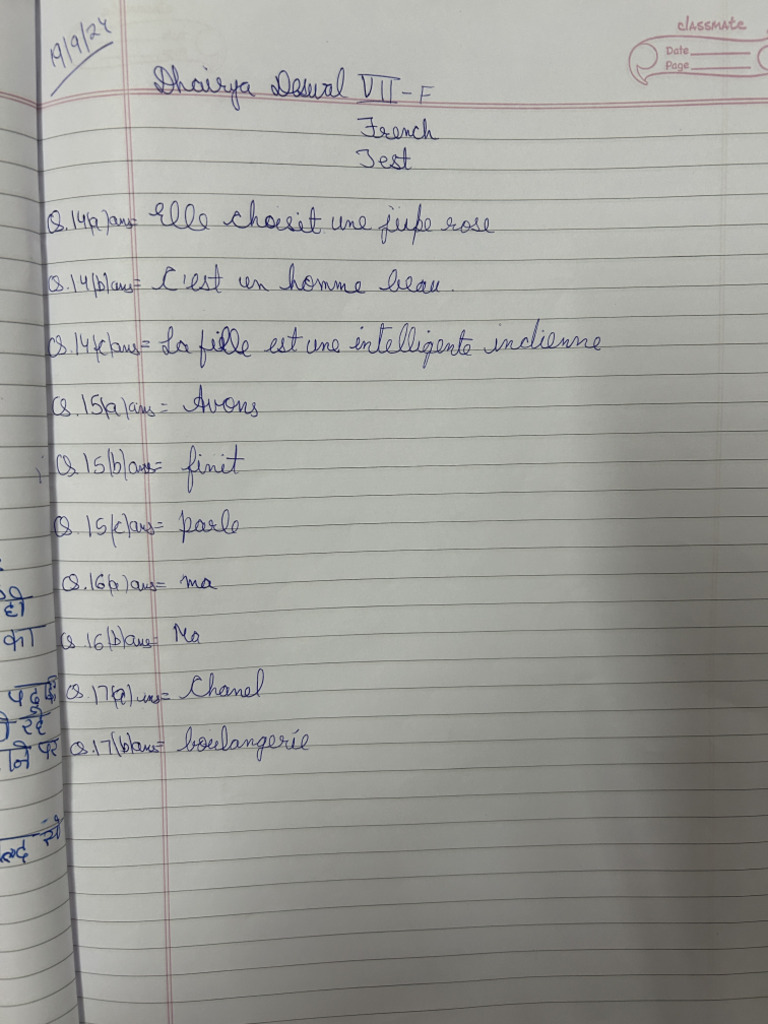 19/9/24
classmate
Date
Page
Dhairya Deswal VII-F
French
Test
Q.14(a)ans= Elle choisit une jupe rose
Q.14(b)ans= C'est un homme beau.
Q.14(c)ans= La fille est une intelligente indienne
Q.15(a)ans= Avons
Q.15(b)ans= finit
Q.15(c)ans= parle
Q.16(a)ans= ma
Q.16(b)ans= Ma
Q.17(a)ans= Chanel
Q.17(b)ans= boulangerie
ही
का
रहे
ने पर
से